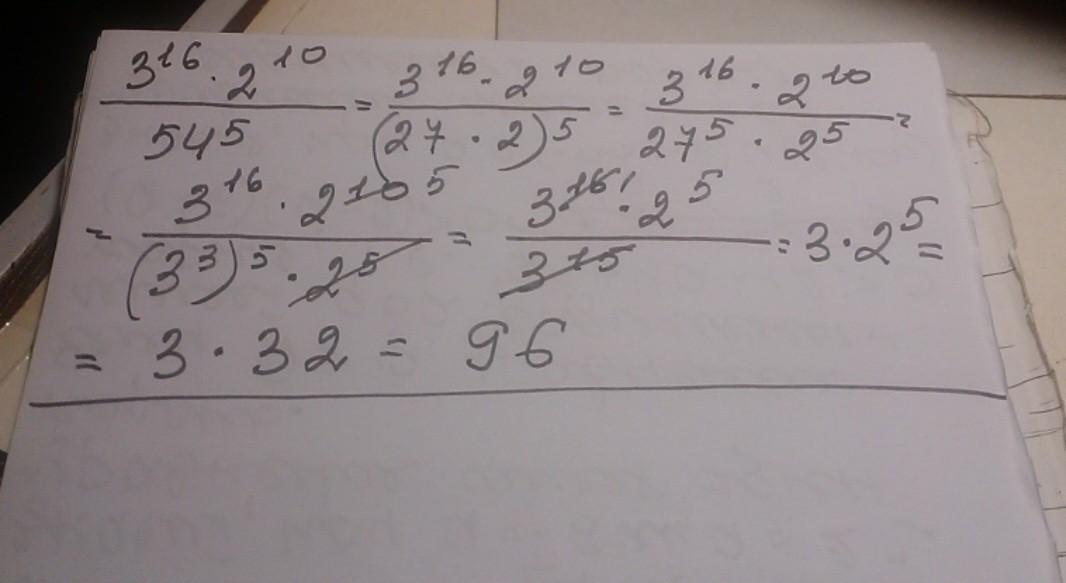 3^16 · 2^10 / 54^5 = 3^16 · 2^10 / (27 · 2)^5 = 3^16 · 2^10 / 27^5 · 2^5 =
= 3^16 · 2^10 5 / (3^3)^5 · 2^5 = 3^16 1 · 2^5 / 3^15 = 3 · 2^5 =
= 3 · 32 = 96